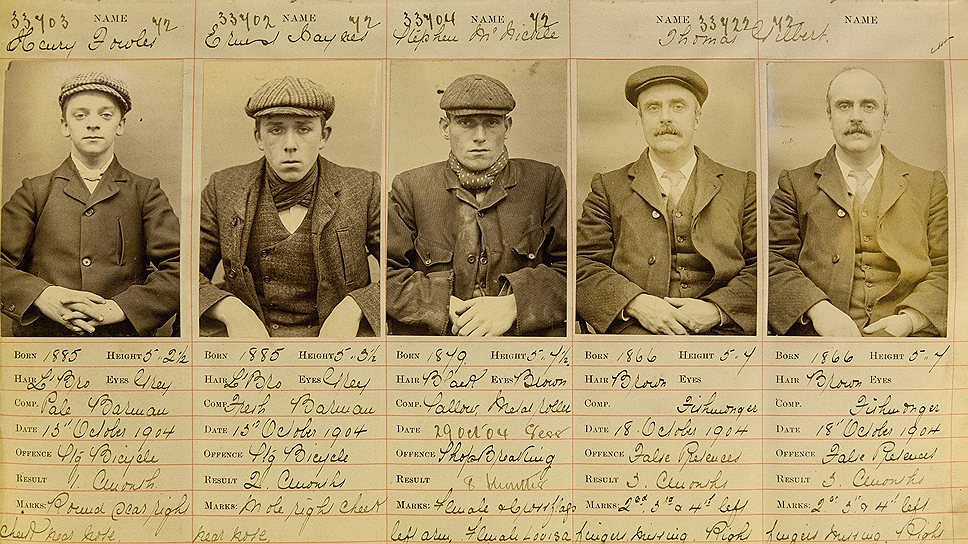 33403 NAME 42
Henry Fowles
BORN 1885 HEIGHT 5-2½
HAIR L' Bro EYES Grey
COMP. Pale Barman
DATE 13" October 1904
OFFENCE Stg Bicycle
RESULT 1. Cmonth
MARKS: Round scar right
cheek near nose.
33402 NAME 42
Ernest Haynes
BORN 1885 HEIGHT 5-3½
HAIR L' Bro EYES Grey
COMP. Fresh Barman
DATE 13" October 1904
OFFENCE Stg Bicycle
RESULT 2. Cmonths
MARKS: Mole right cheek
near nose,
33404 NAME 42
Stephen
BORN HEIGHT 5-4½
HAIR Black EYES Brown
COMP. Sallow, Metal roller
DATE 29 Oct 04 Sess
OFFENCE Shop Breaking
RESULT 8 months
MARKS: Female & Crossflags
left arm, Female Louisa
NAME 33422
Thomas Gilbert.
BORN 1866 HEIGHT 5-4
HAIR Brown EYES
COMP. Fishmonger
DATE 18 October 1904
OFFENCE False Pretences
RESULT 3. Cmonths
MARKS: 2nd 3rd & 4th left
fingers missing, Right
42 NAME
BORN 1866 HEIGHT 5-4
HAIR Brown EYES
COMP. Fishmonger
DATE 18' October 1904
OFFENCE False Pretences
RESULT 3. Cmonths
MARKS: 2" 3" & 4" left
fingers missing, Right